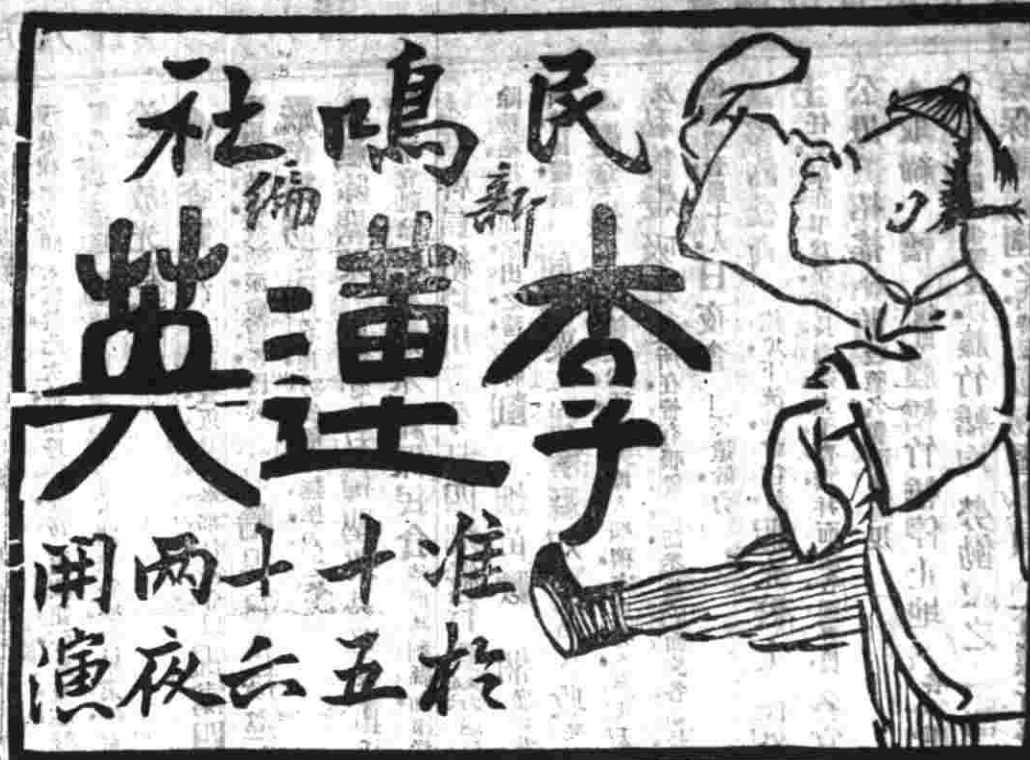 民鳴社
新編
李蓮英
准於
十五
十六
两夜
開演